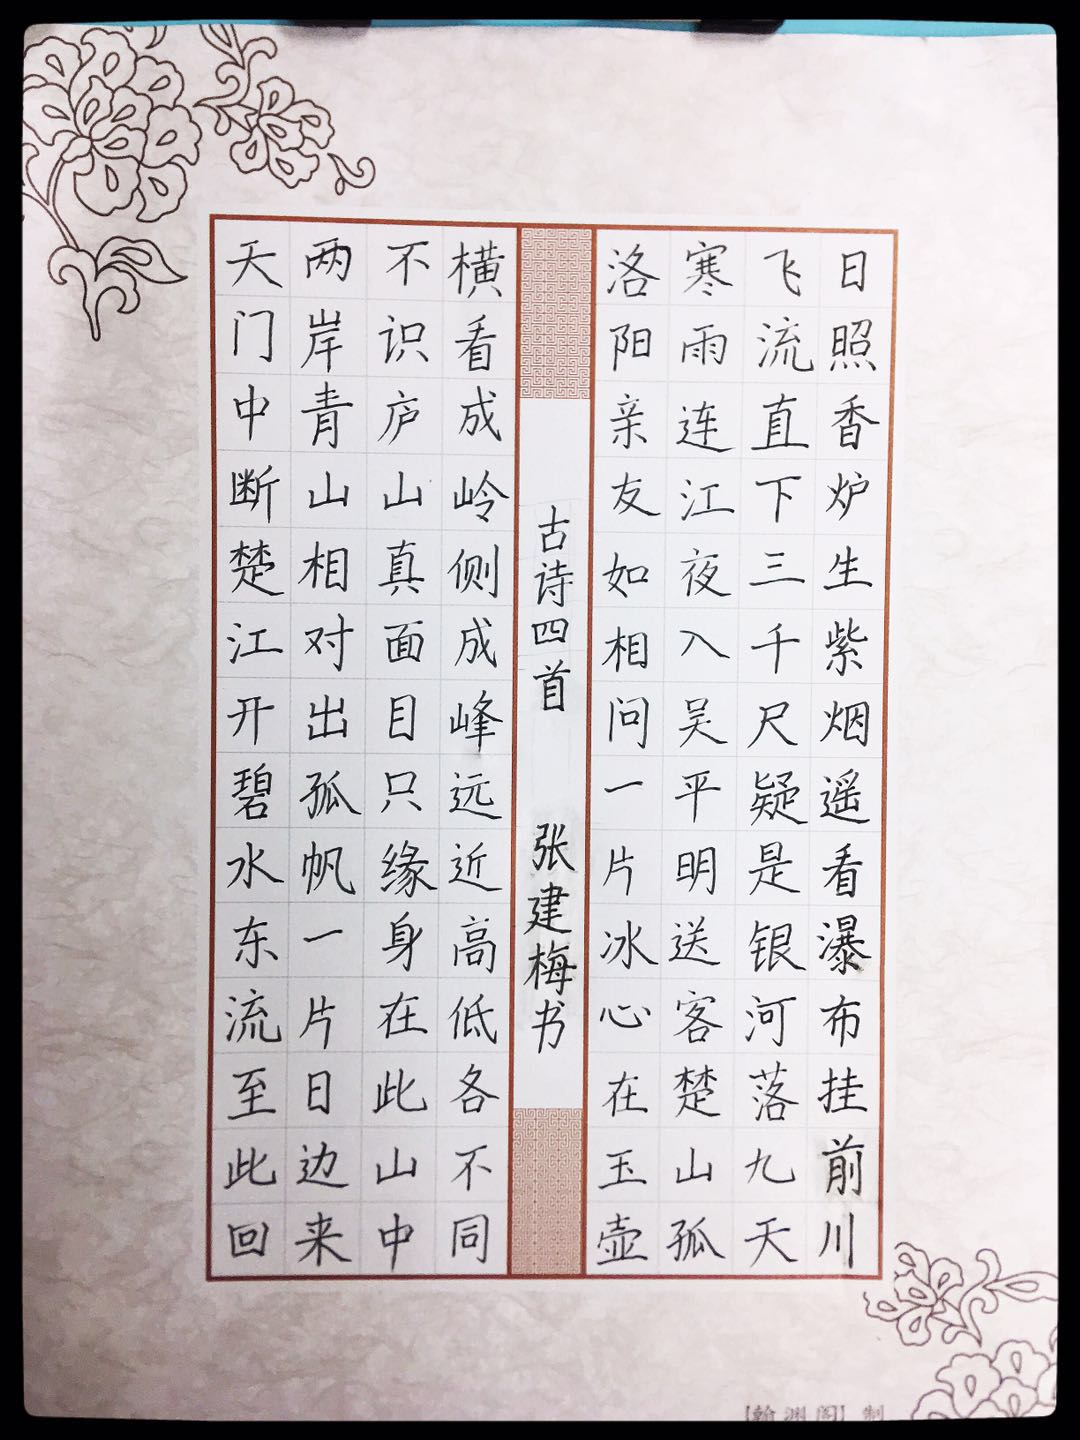 日照香炉生紫烟遥看瀑布挂前川
飞流直下三千尺疑是银河落九天
寒雨连江夜入吴平明送客楚山孤
洛阳亲友如相问一片冰心在玉壶
古诗四首 张建梅书
横看成岭侧成峰远近高低各不同
不识庐山真面目只缘身在此山中
两岸青山相对出孤帆一片日边来
天门中断楚江开碧水东流至此回